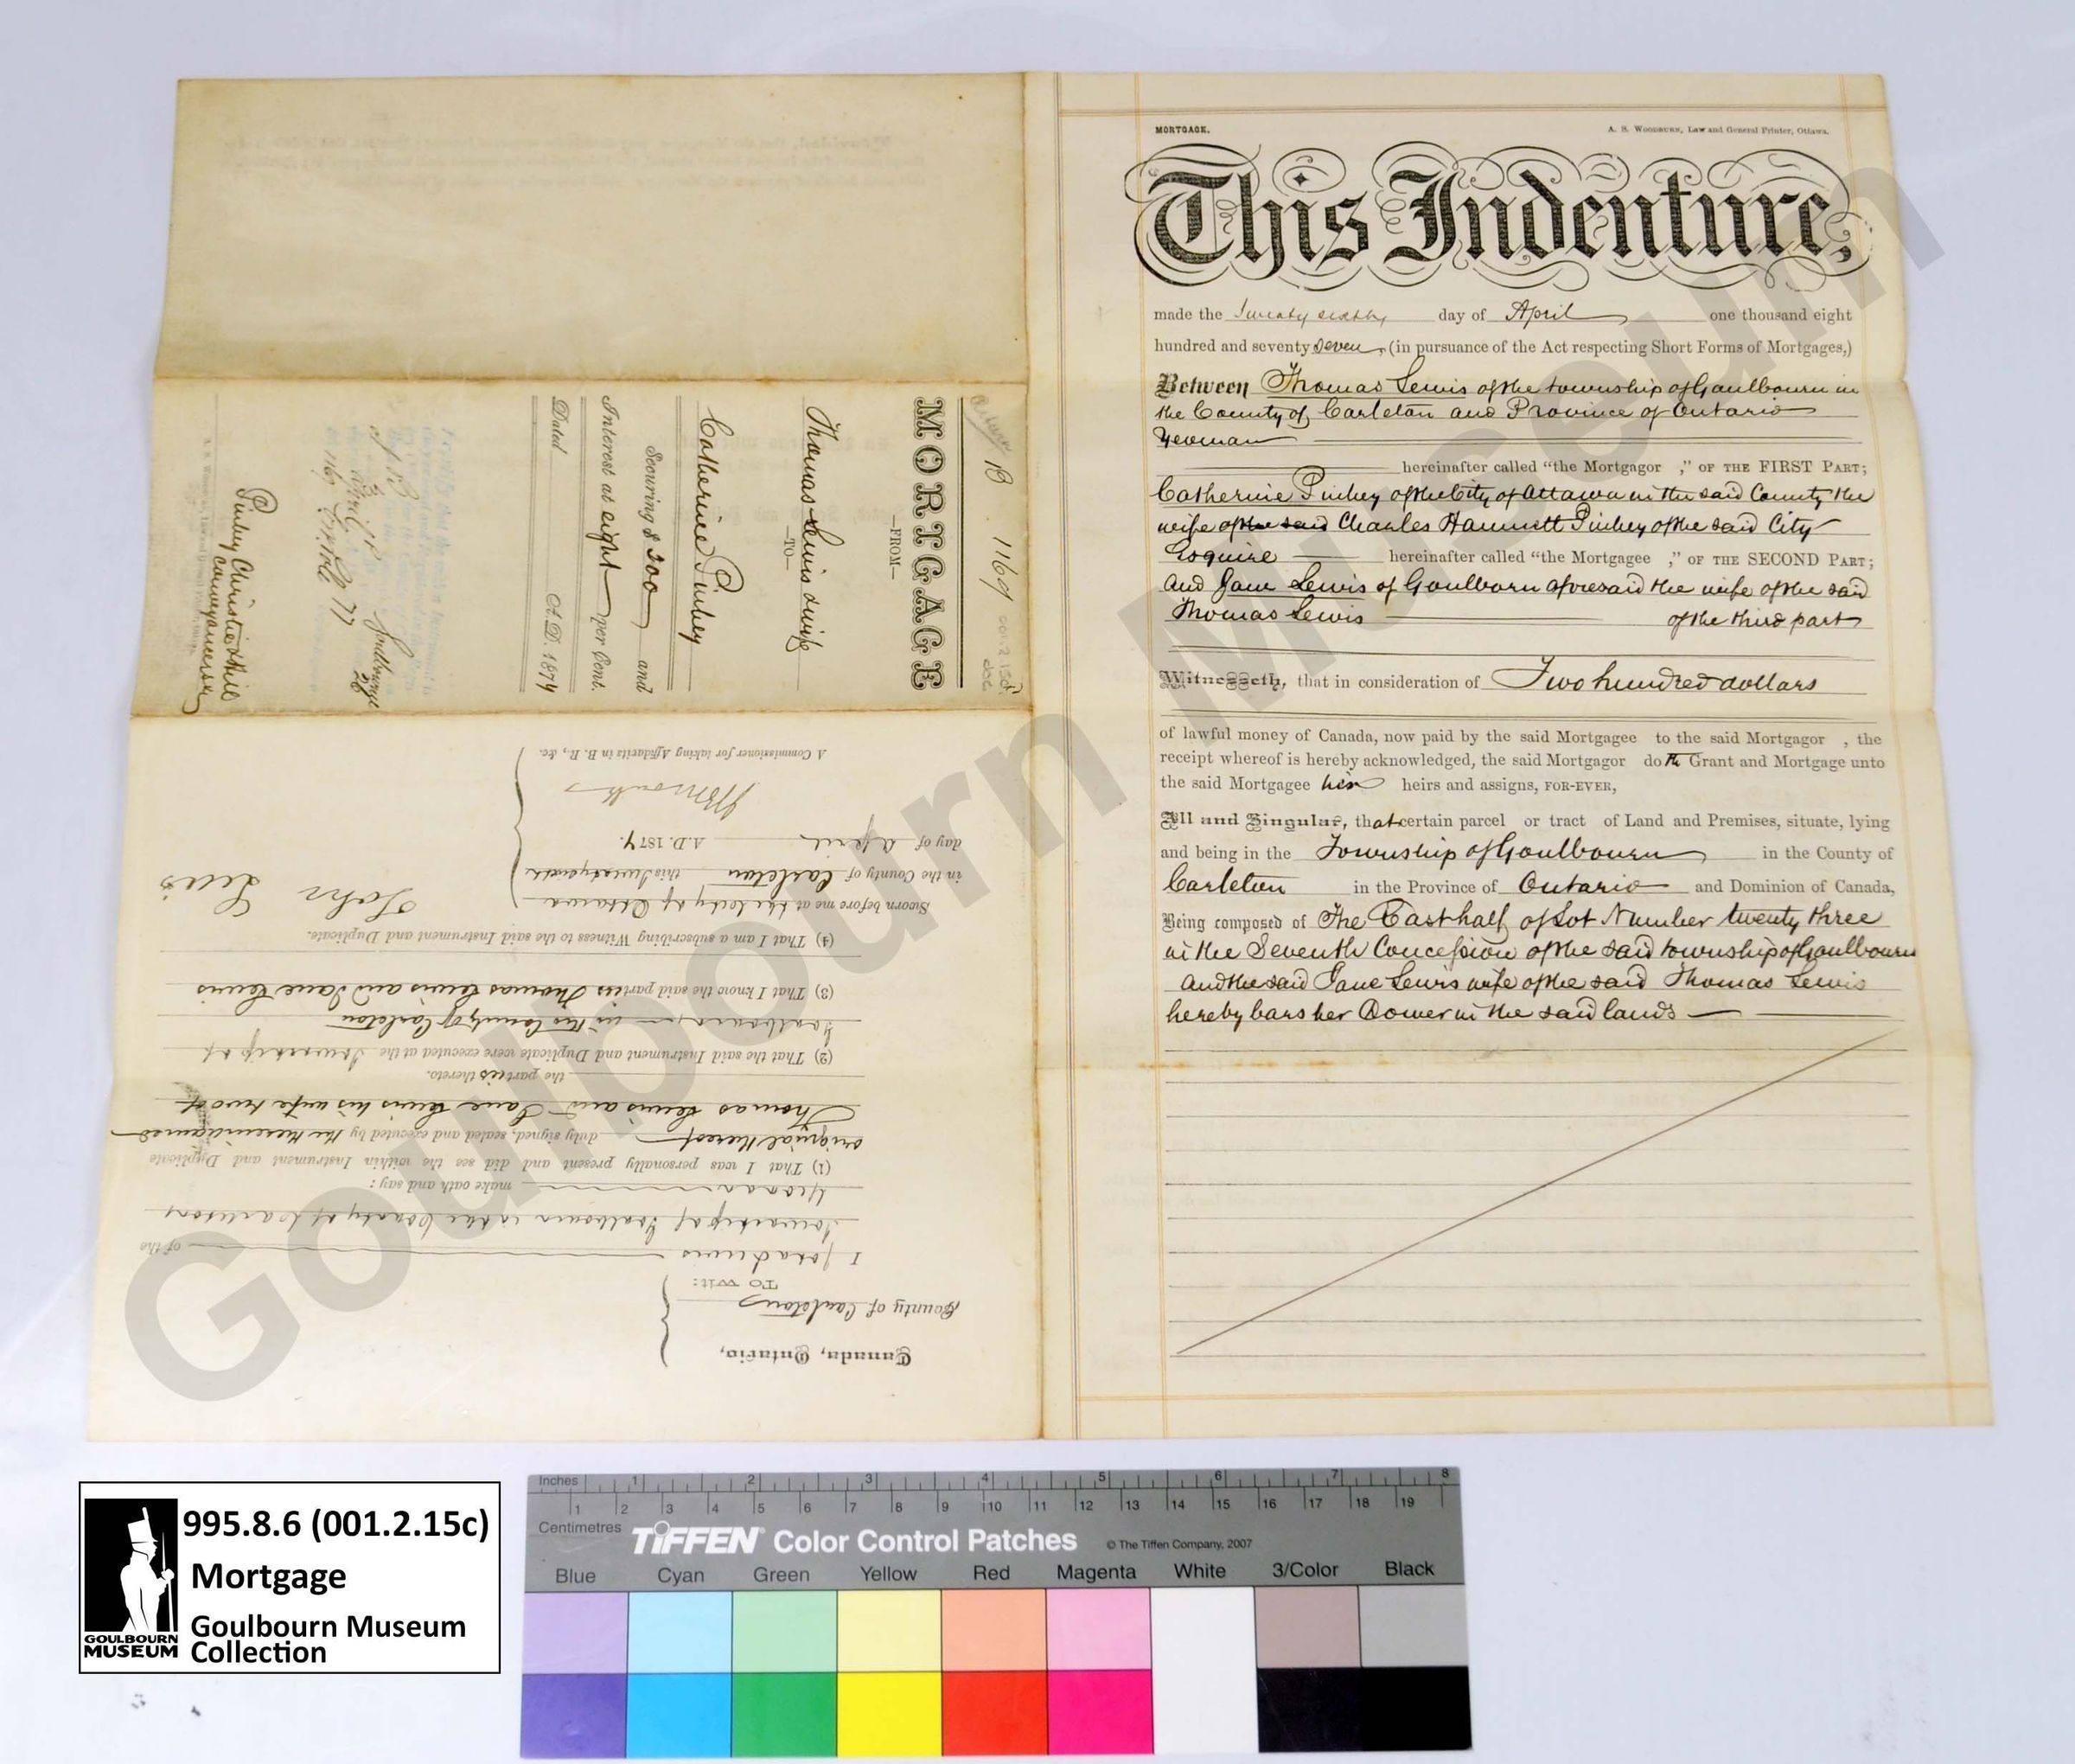 MORTGAGE.
A. S. WOODBURN, Law and General Printer, Ottawa.
This Indenture,
made the twenty sixth day of April one thousand eight
hundred and seventy seven, (in pursuance of the Act respecting Short Forms of Mortgages,)
Between Thomas Lewis of the township of Goulbourn in
the County of Carleton and Province of Ontario
Yeoman
hereinafter called "the Mortgagor ," OF THE FIRST PART;
Catherine Pinhey of the City of Ottawa in the said County the
wife of the said Charles Hamnett Pinhey of the said City
Esquire hereinafter called "the Mortgagee ," OF THE SECOND PART;
and Jane Lewis of Goulbourn aforesaid the wife of the said
Thomas Lewis of the third part
Witnesseth, that in consideration of Two hundred dollars
of lawful money of Canada, now paid by the said Mortgagee to the said Mortgagor , the
receipt whereof is hereby acknowledged, the said Mortgagor doth Grant and Mortgage unto
the said Mortgagee her heirs and assigns, FOR-EVER,
All and Singular, that certain parcel or tract of Land and Premises, situate, lying
and being in the Township of Goulbourn in the County of
Carleton in the Province of Ontario and Dominion of Canada,
Being composed of The East half of Lot Number twenty three
in the Seventh Concession of the said township of Goulbourn
and the said Jane Lewis wife of the said Thomas Lewis
hereby bars her Dower in the said lands
B 1169
001.2.15c
doc
MORTGAGE
—FROM—
Thomas Lewis & wife
—TO—
Catherine Pinhey
Securing $ 200 and
Interest at eight per Cent.
Dated A.D. 1877
Pinhey Christie & Hill
Conveyancers
Canada, Ontario,
County of Carleton
To Wit:
I John Lewis of the
Township of Goulbourn in the County of Carleton
Yeoman make oath and say:
(1) That I was personally present and did see the within Instrument and Duplicate
original thereof duly signed, sealed and executed by the therein named
Thomas Lewis and Jane Lewis his wife two of
the parties thereto.
(2) That the said Instrument and Duplicate were executed at the Township of
Goulbourn in the County of Carleton
(3) That I know the said parties Thomas Lewis and Jane Lewis
(4) That I am a subscribing Witness to the said Instrument and Duplicate.
Sworn before me at the City of Ottawa
in the County of Carleton this
day of April A.D. 1877.
John Lewis
A Commissioner for taking Affidavits in B. R., &c.
Goulbourn Museum
995.8.6 (001.2.15c)
Mortgage
Goulbourn Museum
Collection
GOULBOURN
MUSEUM
Inches 1 2 3 4 5 6 7 8
1 2 3 4 5 6 7 8 9 10 11 12 13 14 15 16 17 18 19
Centimetres
TIFFEN Color Control Patches © The Tiffen Company, 2007
Blue Cyan Green Yellow Red Magenta White 3/Color Black